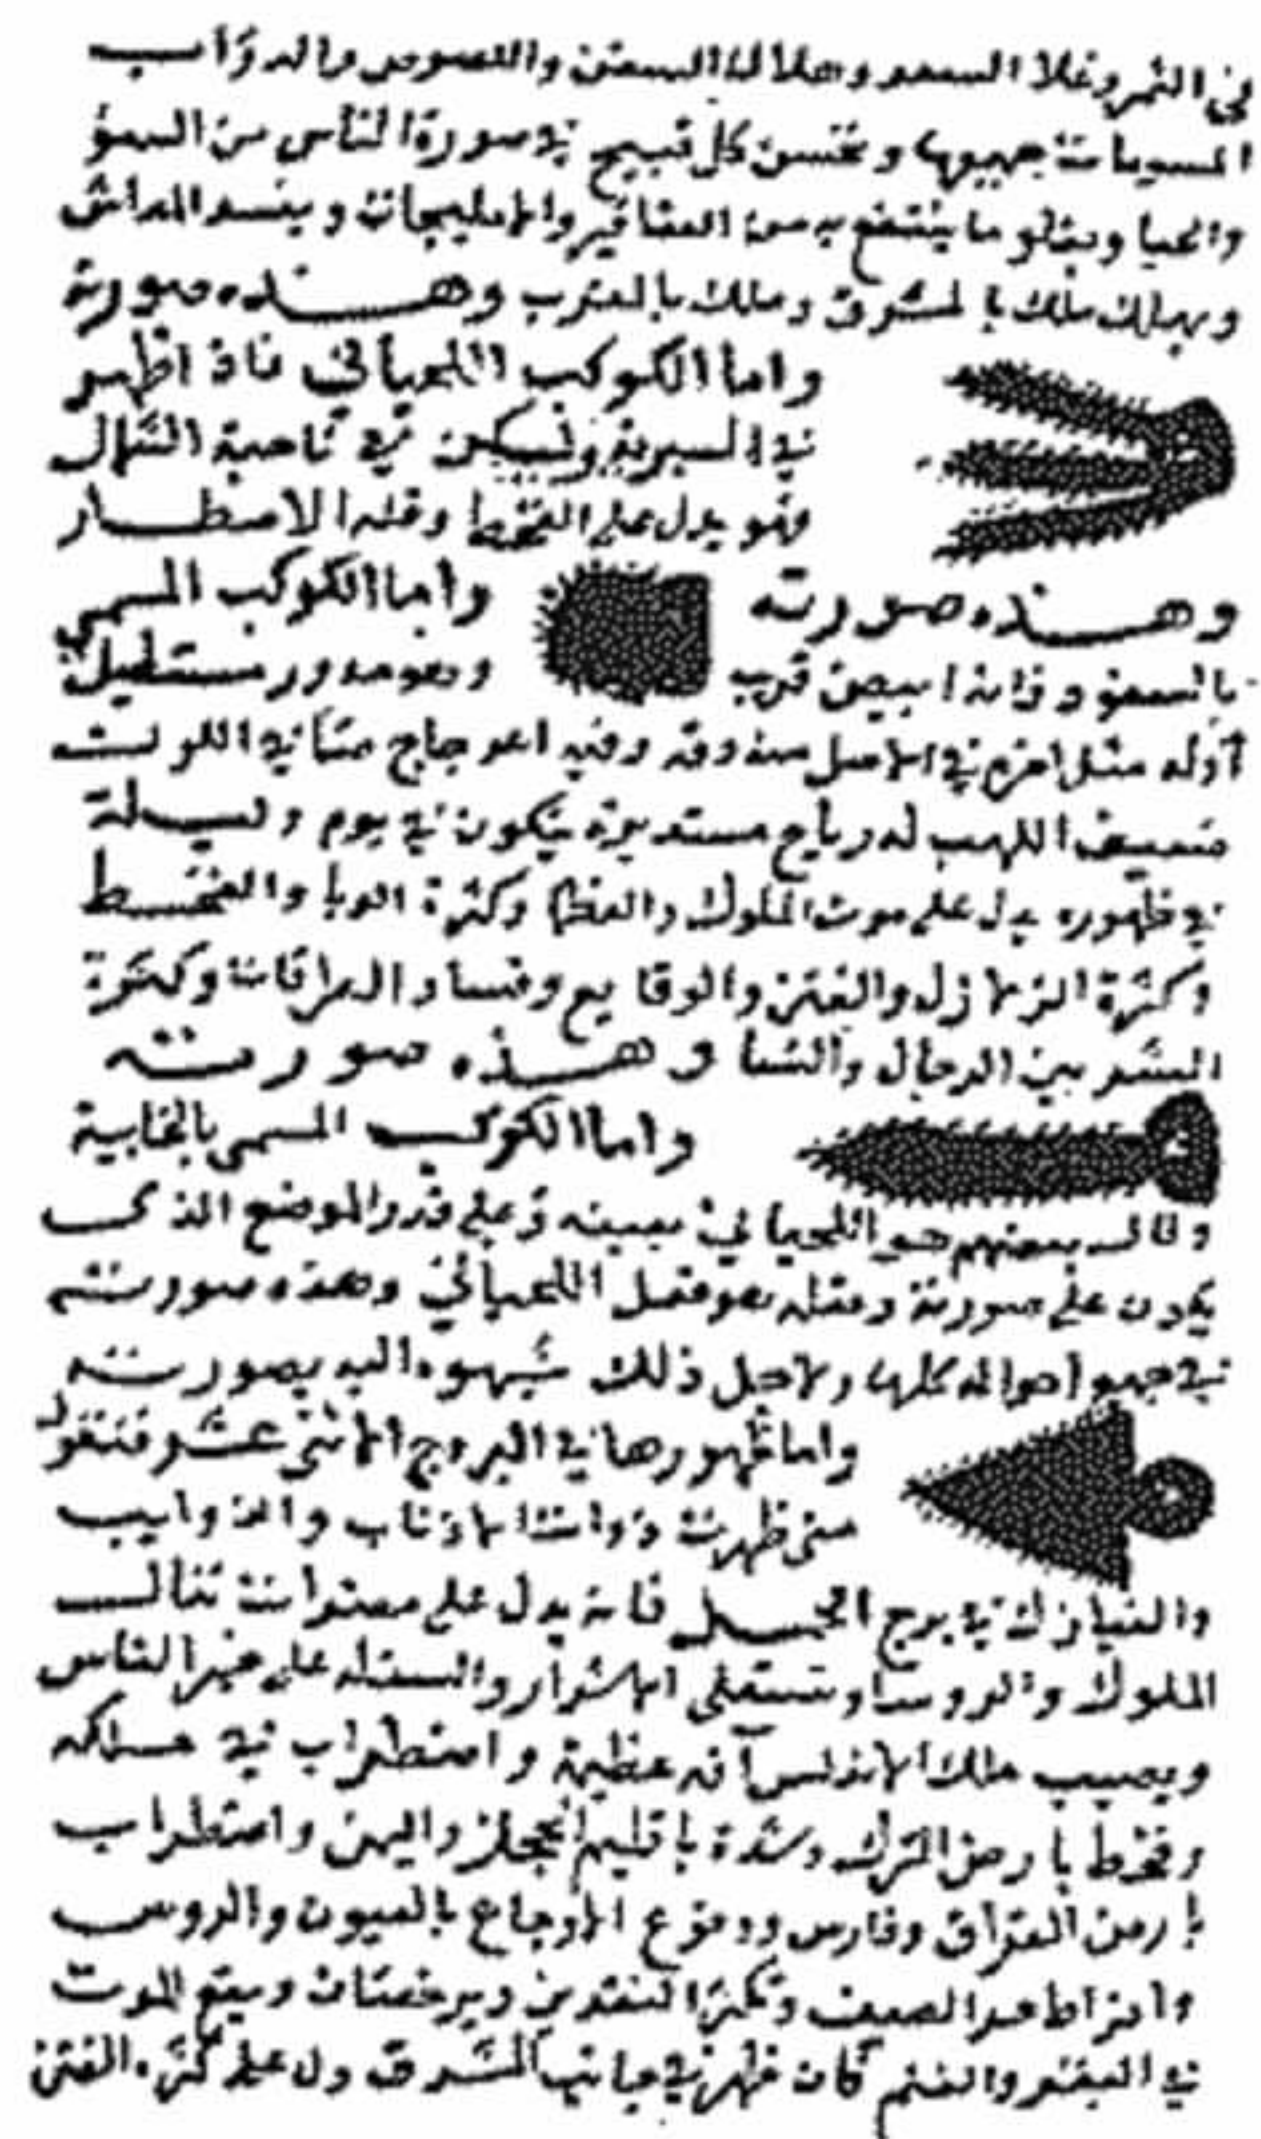 في الثمر وغلا السعر وهلاك السفن واللصوص والدواب
المسميات جميعها وتحسن كل قبيح في صورة الناس من السؤ
والحيا ويغلو ما ينتفع به من العقاقير والاهليجات ويفسد المعاش
ويهلك ملك بالمشرق وملك بالمغرب وهذه صورته
واما الكوكب اللحياني فاذا ظهر
في البرية في ناحية الشمال
فهو يدل على القحط وقلة الامطار
وهذه صورته واما الكوكب المسمى
بالسفود فانه ابيض قرب وهو مدور مستطيل
أوله مثل اخره في الاصل منه دقه وفيه اعوجاج اللون
ضعيف اللهب له رياح مستديرة يتكون في يوم وليلة
في ظهوره يدل على موت الملوك والعظما وكثرة الوبا والقحط
وكثرة الزلازل والفتن والوقايع وفساد الطرقات وكثرة
الشر بين الرجال والنسأ وهذه صورته
واما الكوكب المسمى بالخابية
وقال بعضهم هو اللحياني بعينه وعلى قدر الموضع الذي
يكون على صورته وفعله هو فعل اللحياني وهذه صورته
في جميع أحواله كلها ولاجل ذلك شبهوه اليه بصورته
واما ظهورها في البروج الاثنى عشر فنقول
متى ظهرت ذوات الاذناب والذوايب
والنيازك في برج الحمل فانه يدل على مضرات تنال
الملوك والروسا وتستعلى الاشرار والسفله على خير الناس
ويصيب ملك الاندلس آفه عظيمة واضطراب في مملكه
وقحط بارض الترك وشدة باقليم الحجاز واليمن واضطراب
بارض العراق وفارس ووقوع الاوجاع بالعيون والروس
وافراط حر الصيف وتكثر النقدين ويرخصان ويقع الموت
في البقر والغنم كان ظهر في جانب المشرق دل على كثره الفتن